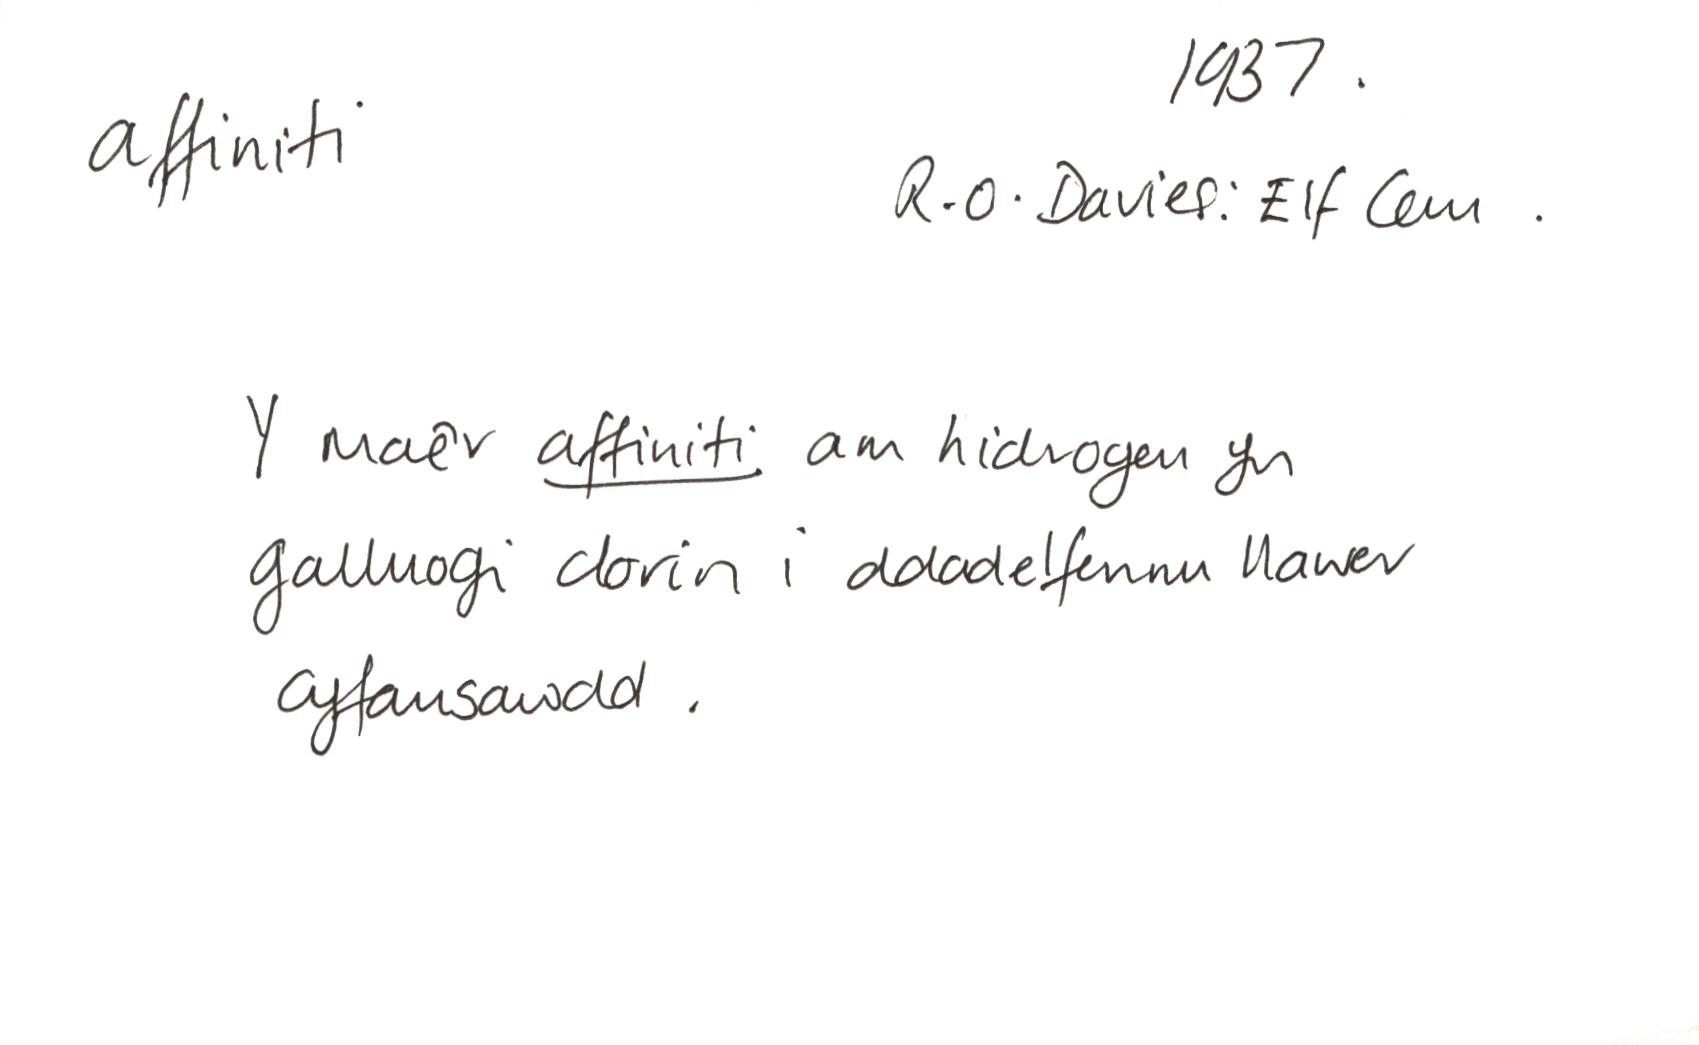 1937.
affiniti
R.O. Davies: Elf Cem.
Y mae'r affiniti am hidrogen yn
galluogi clorin i ddadelfennu llawer
cyfansawdd.